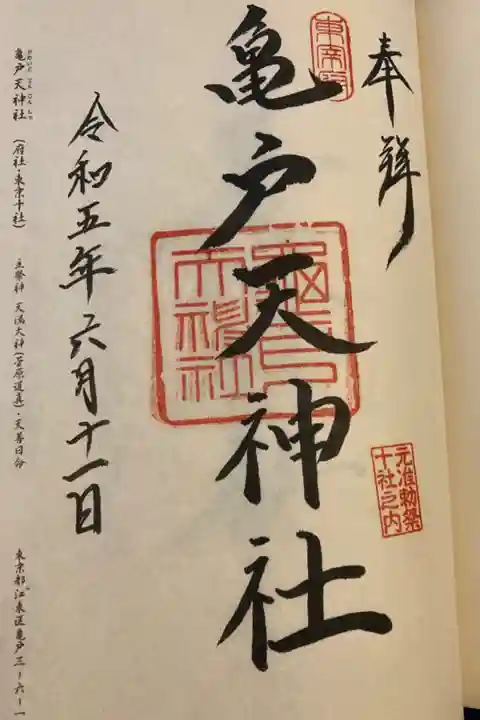 奉拝
東宰府
亀戸天神社
亀戸天神社
元准勅祭
十社之内
令和五年六月十一日
かめいどてんじんしゃ
亀戸天神社（府社・東京十社）　主祭神　天満大神（菅原道真）・天菩日命　東京都江東区亀戸三－六－一